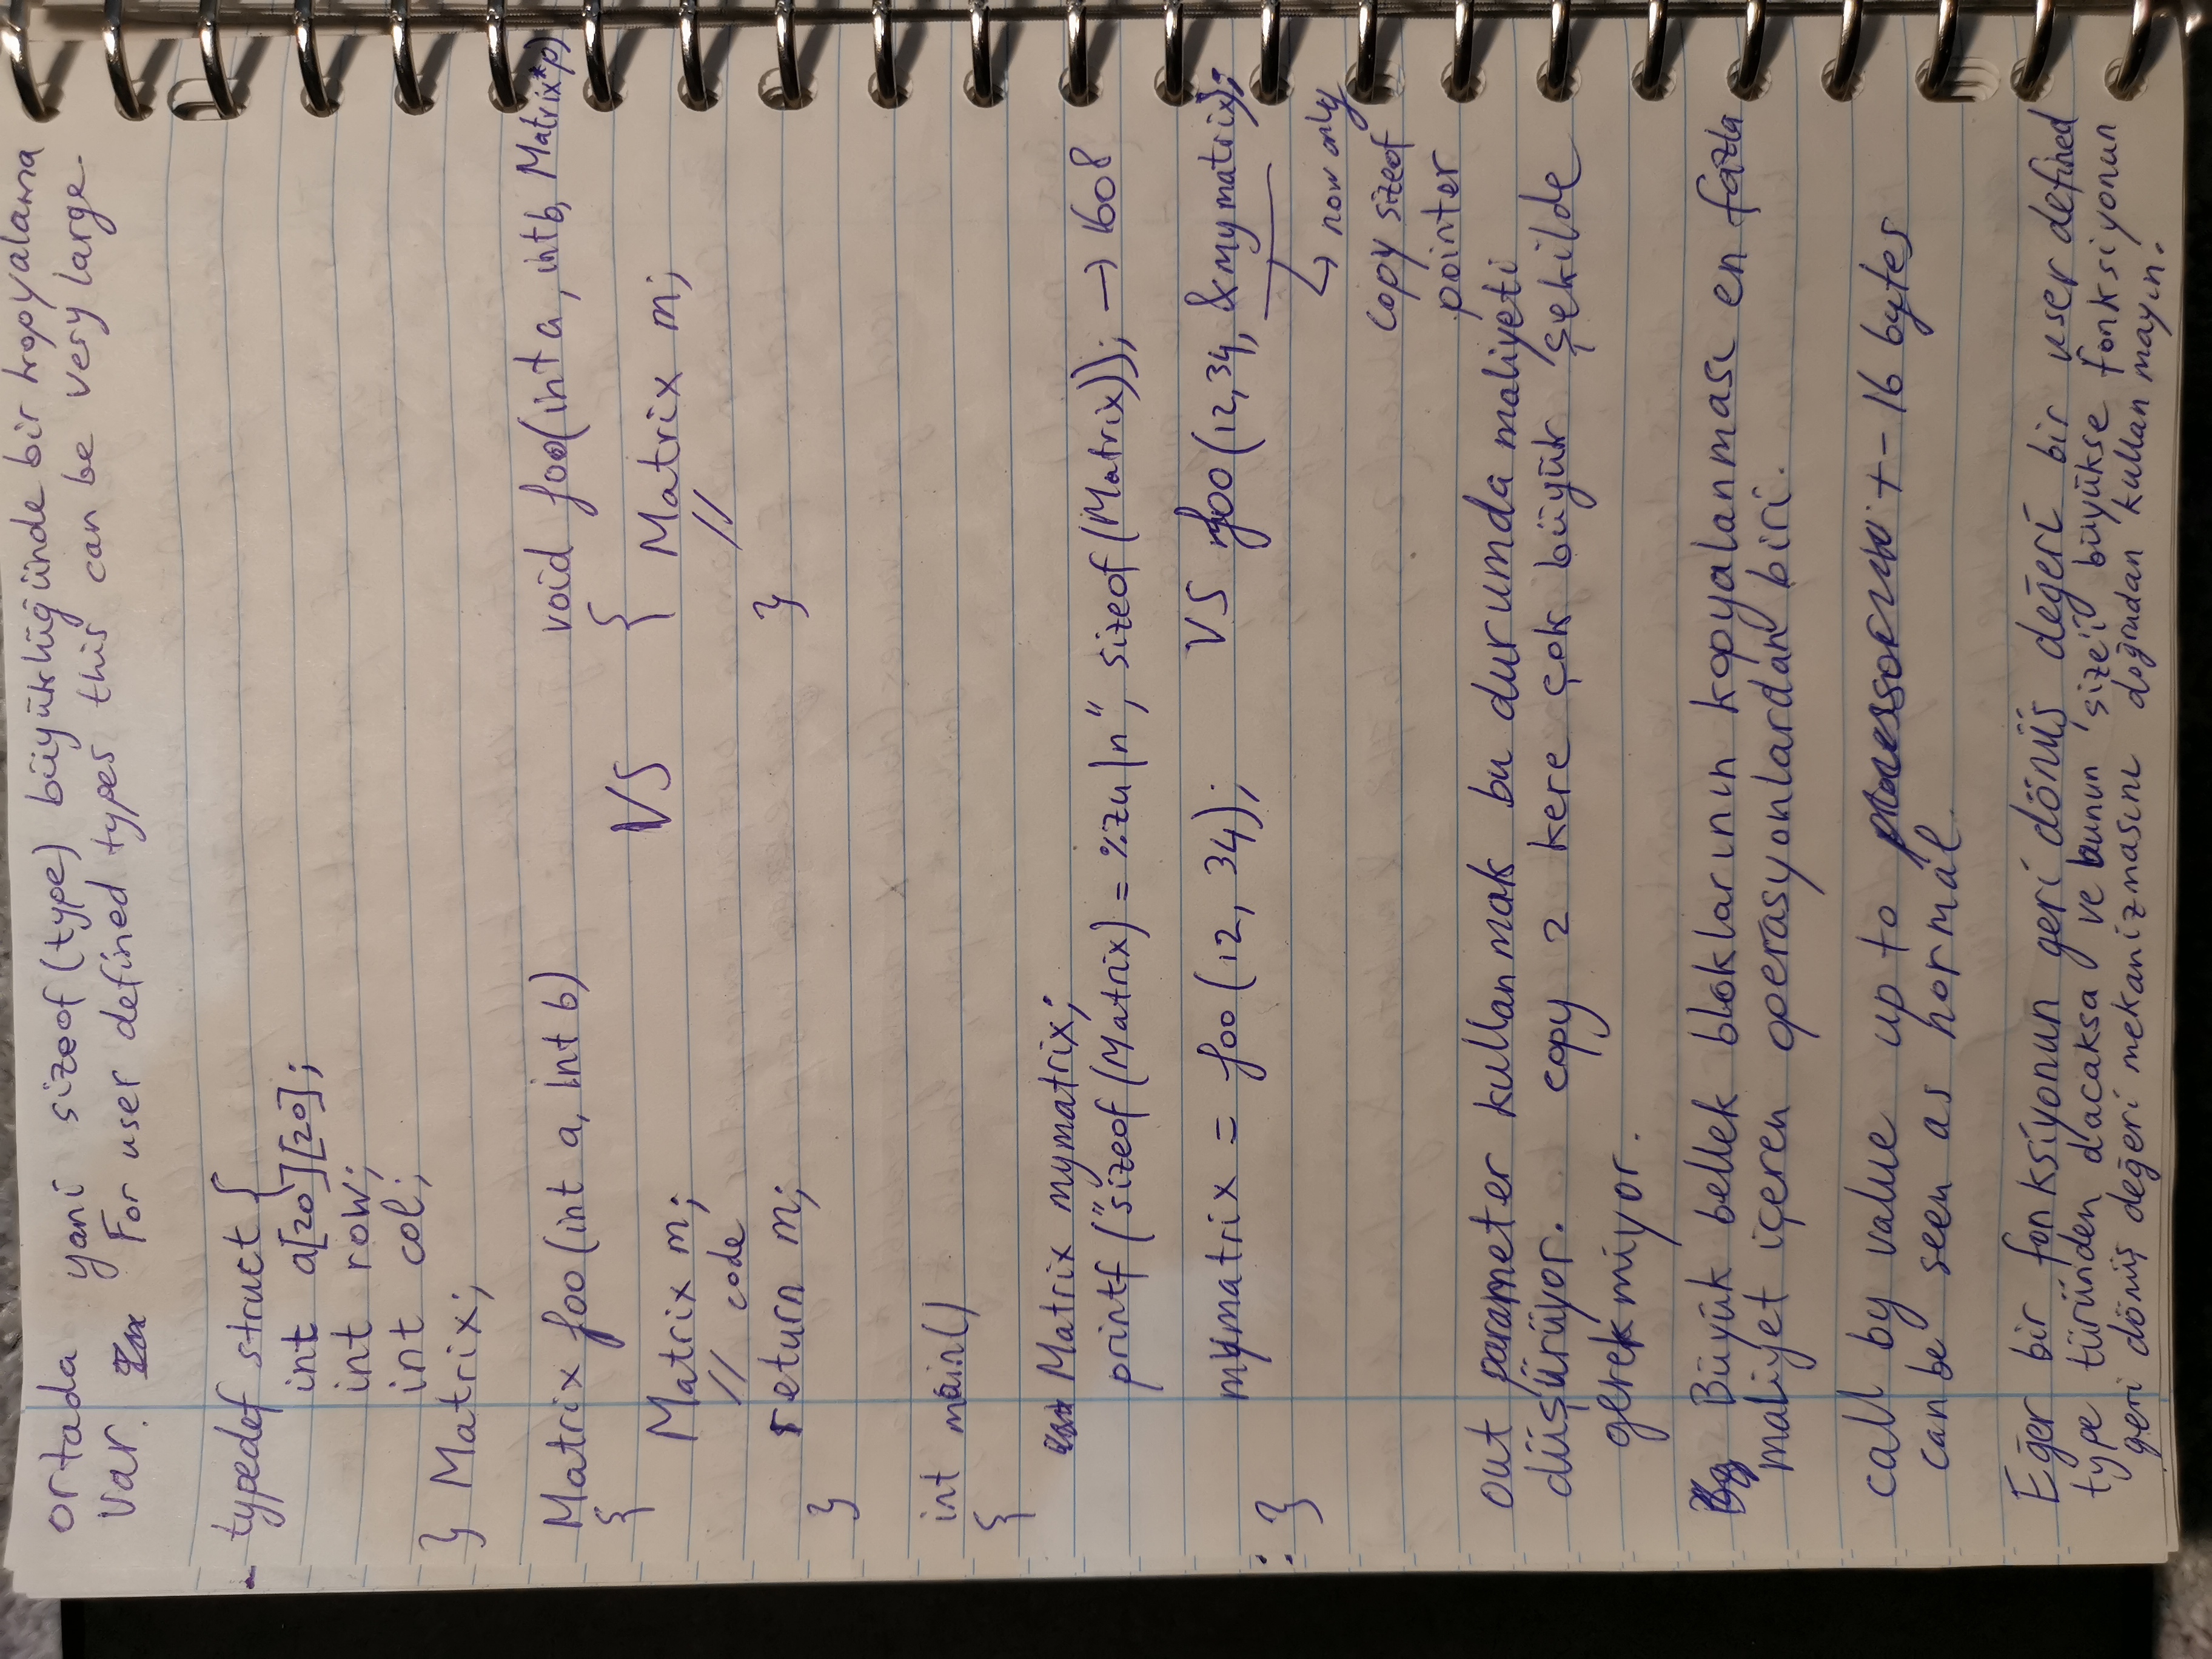 ortada yani sizeof(type) büyüklüğünde bir kopyalama
var. For user defined types this can be very large.
- typedef struct {
int a[20][20];
int row;
int col;
} Matrix;
Matrix foo(int a, int b)
{
Matrix m;
// code
return m;
}
VS
void foo(int a, int b, Matrix*p)
{
Matrix m;
//
}
int main()
{
Matrix mymatrix;
printf("sizeof(Matrix) = %zu\n", sizeof(Matrix)); → 1608
mymatrix = foo(12, 34); VS foo(12,34, &mymatrix);
}
↳ now only
copy sizeof
pointer
out parameter kullanmak bu durumda maliyeti
düşürüyor. copy 2 kere çok büyük şekilde
gerekmiyor.
Büyük bellek bloklarının kopyalanması en fazla
maliyet içeren operasyonlardan biri.
call by value up to +- 16 bytes
can be seen as normal.
Eğer bir fonksiyonun geri dönüş değeri bir user defined
type türünden olacaksa ve bunun size'i büyükse fonksiyonun
geri dönüş değeri mekanizmasını doğrudan kullanmayın.